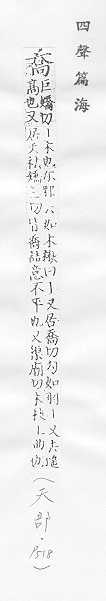 四聲篇海
喬巨嬌切丨木也尒雅云如木楸曰丨又居喬切勾如羽丨又去遙
高也又居夭矯三切皆喬詰意不平也又渠廟切木枝上曲也
（夭部．518）